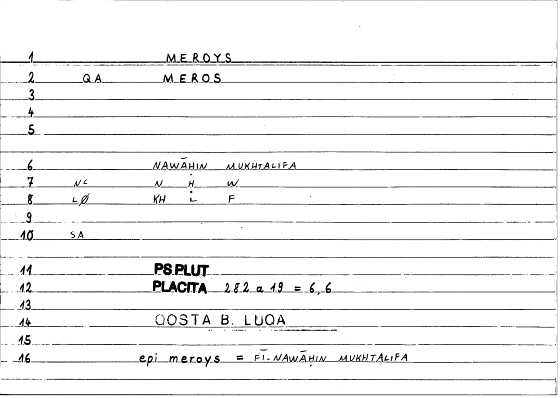 1 MEROYS
2 QA MEROS
3
4
5
6 NAWĀḤIN MUKHTALIFA
7 NC N Ḥ W
8 LØ KH L F
9
10 SA
11 PS.PLUT
12 PLACITA 282 a 19 = 6,6
13
14 QOSTA B. LUQA
15
16 epi meroys = FĪ-NAWĀḤIN MUKHTALIFA